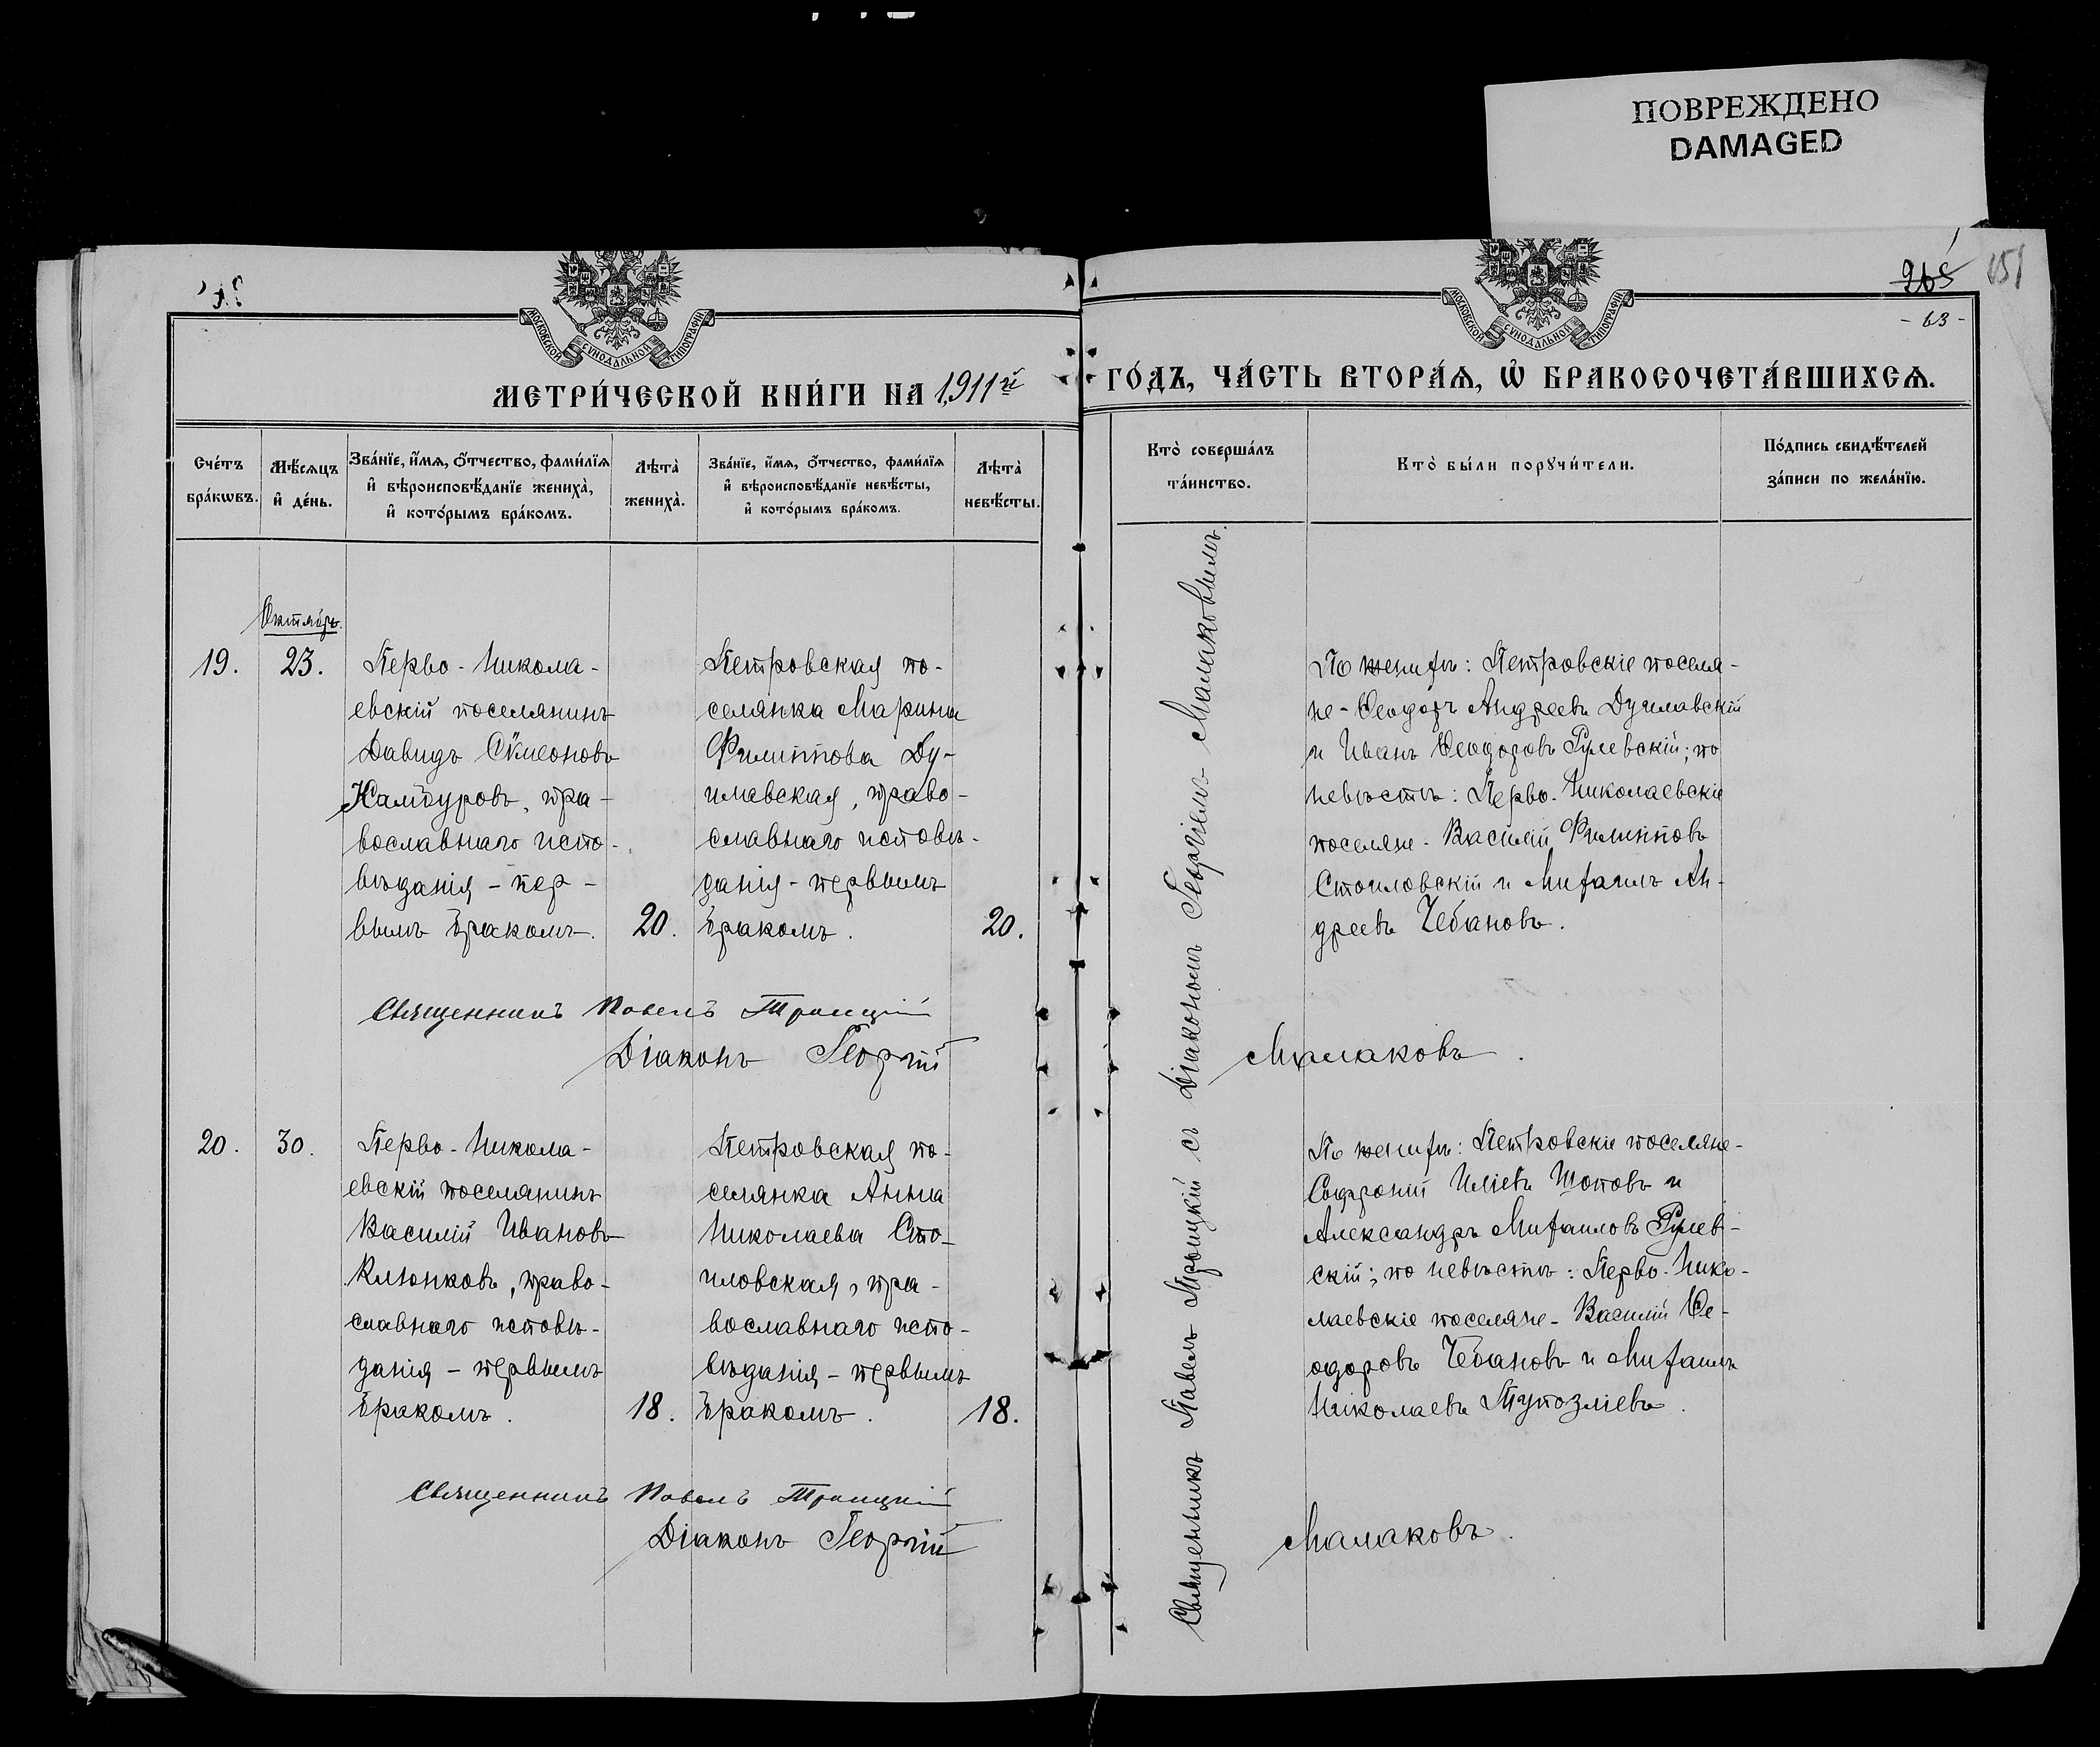 ПОВРЕЖДЕНО
DAMAGED
265
151
- 63 -
МОСКОВСКОЙ СѴНОДАЛЬНОЙ ТИПОГРАФІИ
МОСКОВСКОЙ СѴНОДАЛЬНОЙ ТИПОГРАФІИ
МЕТРИ́ЧЕСКОЙ КНИ́ГИ НА 1911й
ГО́ДЪ, ЧА́СТЬ ВТОРА́Ѧ, Ѡ҆ БРАКОСОЧЕТА́ВШИХСѦ.
Сче́тъ
бра́кѡвъ.
Мѣ́сяцъ
и҆ де́нь.
Зва́нїе, и҆́мѧ, ѻ҆́тчество, фами́лїѧ
и҆ вѣроисповѣ́данїе жениха̀,
и҆ кото́рымъ бра́комъ.
Лѣта̀
жениха̀.
Зва́нїе, и҆́мѧ, ѻ҆́тчество, фами́лїѧ
и҆ вѣроисповѣ́данїе невѣ́сты,
и҆ кото́рымъ бра́комъ.
Лѣта̀
невѣ́сты.
Кто̀ соверша́лъ
та́инство.
Кто̀ бы́ли порꙋчи́тели.
По́дпись свидѣ́телей
за́писи по жела́нїю.
Октябрь.
19.
23.
Перво-Никола-
евскій поселянинъ
Давидъ Сѵмеоновъ
Камбуровъ, пра-
вославнаго испо-
вѣданія - пер-
вымъ бракомъ.
20.
Петровская по-
селянка Марина
Филиппова Ду-
шлавская, право-
славнаго исповѣ-
данія - первымъ
бракомъ.
20.
Священникъ Павелъ Троицкій съ Діакономъ Георгіемъ Малаковымъ.
По женихѣ: Петровскіе поселя-
не - Ѳеодоръ Андреевъ Душлавскій
и Иванъ Ѳеодоровъ Гулевскій; по
невѣстѣ: Перво-Николаевскіе
поселяне - Василій Филипповъ
Стоиловскій и Михаилъ Ан-
дреевъ Чебановъ.
Священникъ Павелъ Троицкій
Діаконъ Георгій Малаковъ.
20.
30.
Перво-Никола-
евскій поселянинъ
Василій Ивановъ
Клюнковъ, право-
славнаго исповѣ-
данія - первымъ
бракомъ.
18.
Петровская по-
селянка Анна
Николаева Сто-
иловская, пра-
вославнаго испо-
вѣданія - первымъ
бракомъ.
18.
По женихѣ: Петровскіе поселяне-
Софроній Иліевъ Шоповъ и
Александръ Михаиловъ Гулев-
скій; по невѣстѣ: Перво-Нико-
лаевскіе поселяне - Василій Ѳе-
одоровъ Чебановъ и Михаилъ
Николаевъ Тупозліевъ.
Священникъ Павелъ Троицкій
Діаконъ Георгій Малаковъ.